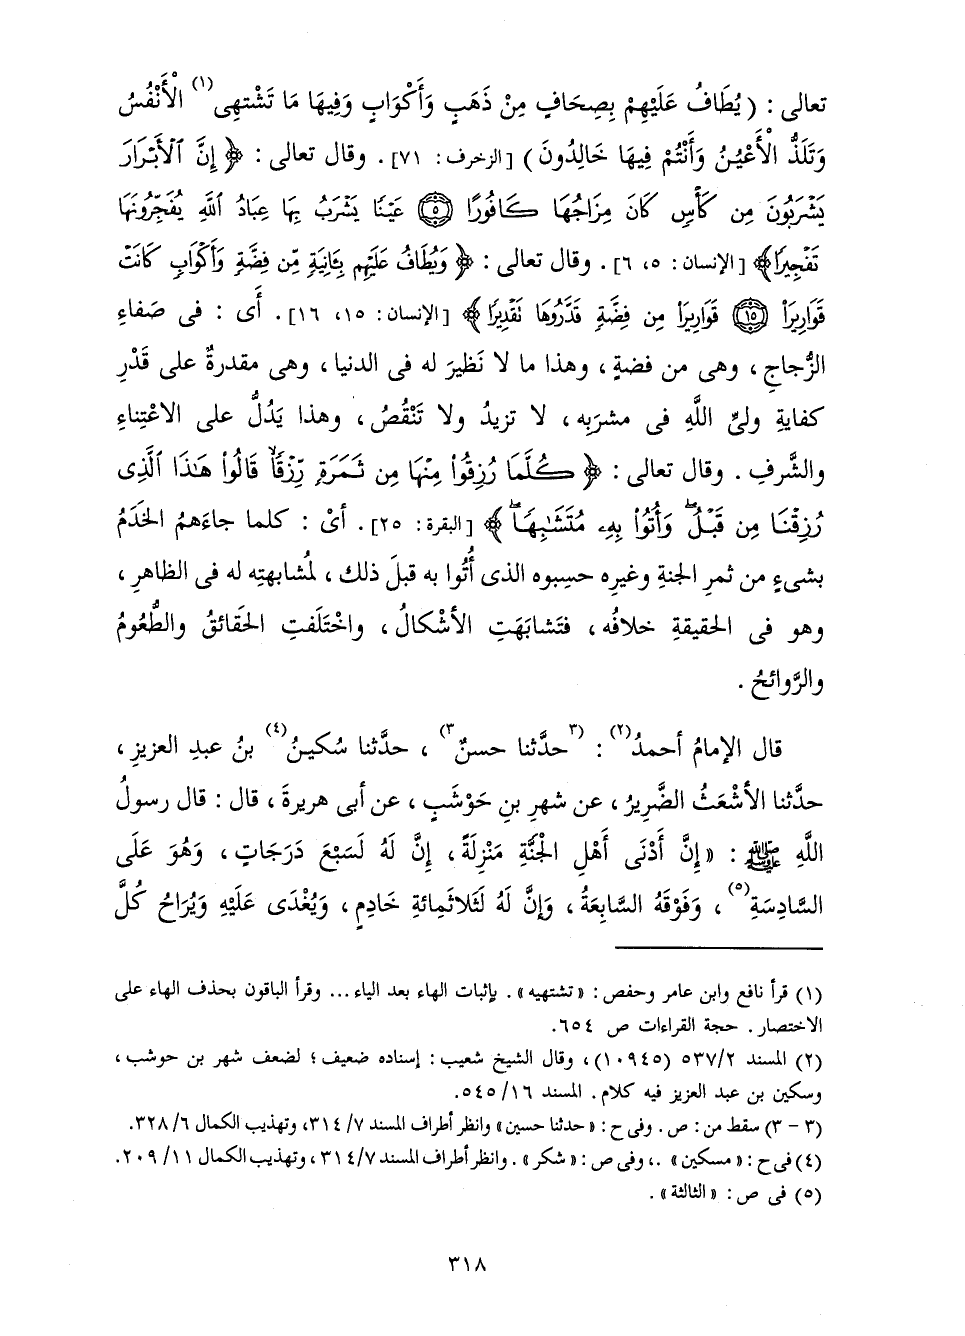 تعالى : ( يُطَافُ عَلَيْهِمْ بِصِحَافٍ مِنْ ذَهَبٍ وَأَكْوَابٍ وَفِيهَا مَا تَشْتهِى(١) الْأَنْفُسُ
وَتَلَذُّ الْأَعْيُنُ وَأَنْتُمْ فِيهَا خَالِدُونَ ) [الزخرف: ٧١] . وقال تعالى : ﴿ إِنَّ ٱلْأَبْرَارَ
يَشْرَبُونَ مِن كَأْسٍ كَانَ مِزَاجُهَا كَافُورًا ۝٥ عَيْنًا يَشْرَبُ بِهَا عِبَادُ ٱللَّهِ يُفَجِّرُونَهَا
تَفْجِيرًا﴾ [الإنسان: ٥، ٦] . وقال تعالى : ﴿ وَيُطَافُ عَلَيْهِم بِـَٔانِيَةٍ مِّن فِضَّةٍ وَأَكْوَابٍ كَانَتْ
قَوَارِيرَا۠ ۝١٥ قَوَارِيرَا۟ مِن فِضَّةٍ قَدَّرُوهَا تَقْدِيرًا ﴾ [الإنسان: ١٥، ١٦] . أَى : فى صَفاءِ
الزُّجاجِ ، وهى من فضةٍ ، وهذا ما لا نَظيرَ له فى الدنيا ، وهى مقدرةٌ على قَدْرِ
كفايةِ ولىِّ اللَّهِ فى مشربِه ، لا تزيدُ ولا تَنْقُصُ ، وهذا يَدُلُّ على الاعْتِناءِ
والشَّرفِ . وقال تعالى : ﴿ كُلَّمَا رُزِقُوا۟ مِنْهَا مِن ثَمَرَةٍ رِّزْقًا ۙ قَالُوا۟ هَـٰذَا ٱلَّذِى
رُزِقْنَا مِن قَبْلُ ۖ وَأُتُوا۟ بِهِۦ مُتَشَـٰبِهًا ۖ ﴾ [البقرة: ٢٥] . أىْ : كلما جاءَهمُ الخَدَمُ
بشىءٍ من ثمرِ الجنةِ وغيرِه حسِبوه الذى أُتُوا به قبلَ ذلك ، لمُشابهتِه له فى الظاهرِ ،
وهو فى الحقيقةِ خلافُه ، فتَشابَهَتِ الأشْكالُ ، واخْتَلَفتِ الحَقائقُ والطُّعُومُ
والرَّوائحُ .
قال الإمامُ أحمدُ(٢) : (٣حدَّثنا حسنٌ٣) ، حدَّثنا سُكينُ(٤) بنُ عبدِ العزيزِ ،
حدَّثنا الأشْعَثُ الضَّرِيرُ ، عن شهرِ بنِ حَوْشَبٍ ، عن أبى هريرةَ ، قال : قال رسولُ
اللَّهِ ﷺ : « إِنَّ أَدْنَى أَهْلِ الجَنَّةِ مَنْزِلَةً ، إِنَّ لَهُ لَسَبْعَ دَرَجَاتٍ ، وَهُوَ عَلَى
السَّادِسَةِ(٥) ، وَفَوْقَهُ السَّابِعَةُ ، وَإِنَّ لَهُ لَثَلاثَمِائةِ خَادِمٍ ، وَيُغْدَى عَلَيْهِ وَيُرَاحُ كُلَّ
(١) قرأ نافع وابن عامر وحفص : « تشتهيه » . بإثبات الهاء بعد الياء ... وقرأ الباقون بحذف الهاء على
الاختصار . حجة القراءات ص ٦٥٤.
(٢) المسند ٥٣٧/٢ (١٠٩٤٥) ، وقال الشيخ شعيب : إسناده ضعيف ؛ لضعف شهر بن حوشب ،
وسكين بن عبد العزيز فيه كلام . المسند ٥٤٥/١٦.
(٣ - ٣) سقط من : ص . وفى ح : « حدثنا حسين » وانظر أطراف المسند ٣١٤/٧، وتهذيب الكمال ٣٢٨/٦.
(٤) فى ح : « مسكين » .، وفى ص : « شكر » . وانظر أطراف المسند ٣١٤/٧، وتهذيب الكمال ٢٠٩/١١.
(٥) فى ص : « الثالثة » .
٣١٨